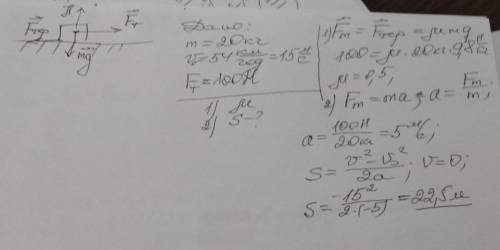 N⃗
F⃗тр
F⃗т
mg⃗
Дано:
m = 20 кг
v = 54 км/год = 15 м/с
Fт = 100Н
1) μ
2) S - ?
1) F⃗m = F⃗тр = μmg
100 = μ · 20кг · 9,8 Н/кг
μ = 0,5;
2) Fm = ma, a = Fm/m;
a = 100Н/20кг = 5 м/с;
S = (v² - v₀²)/2a; v = 0;
S = -15²/2·(-5) = 22,5м